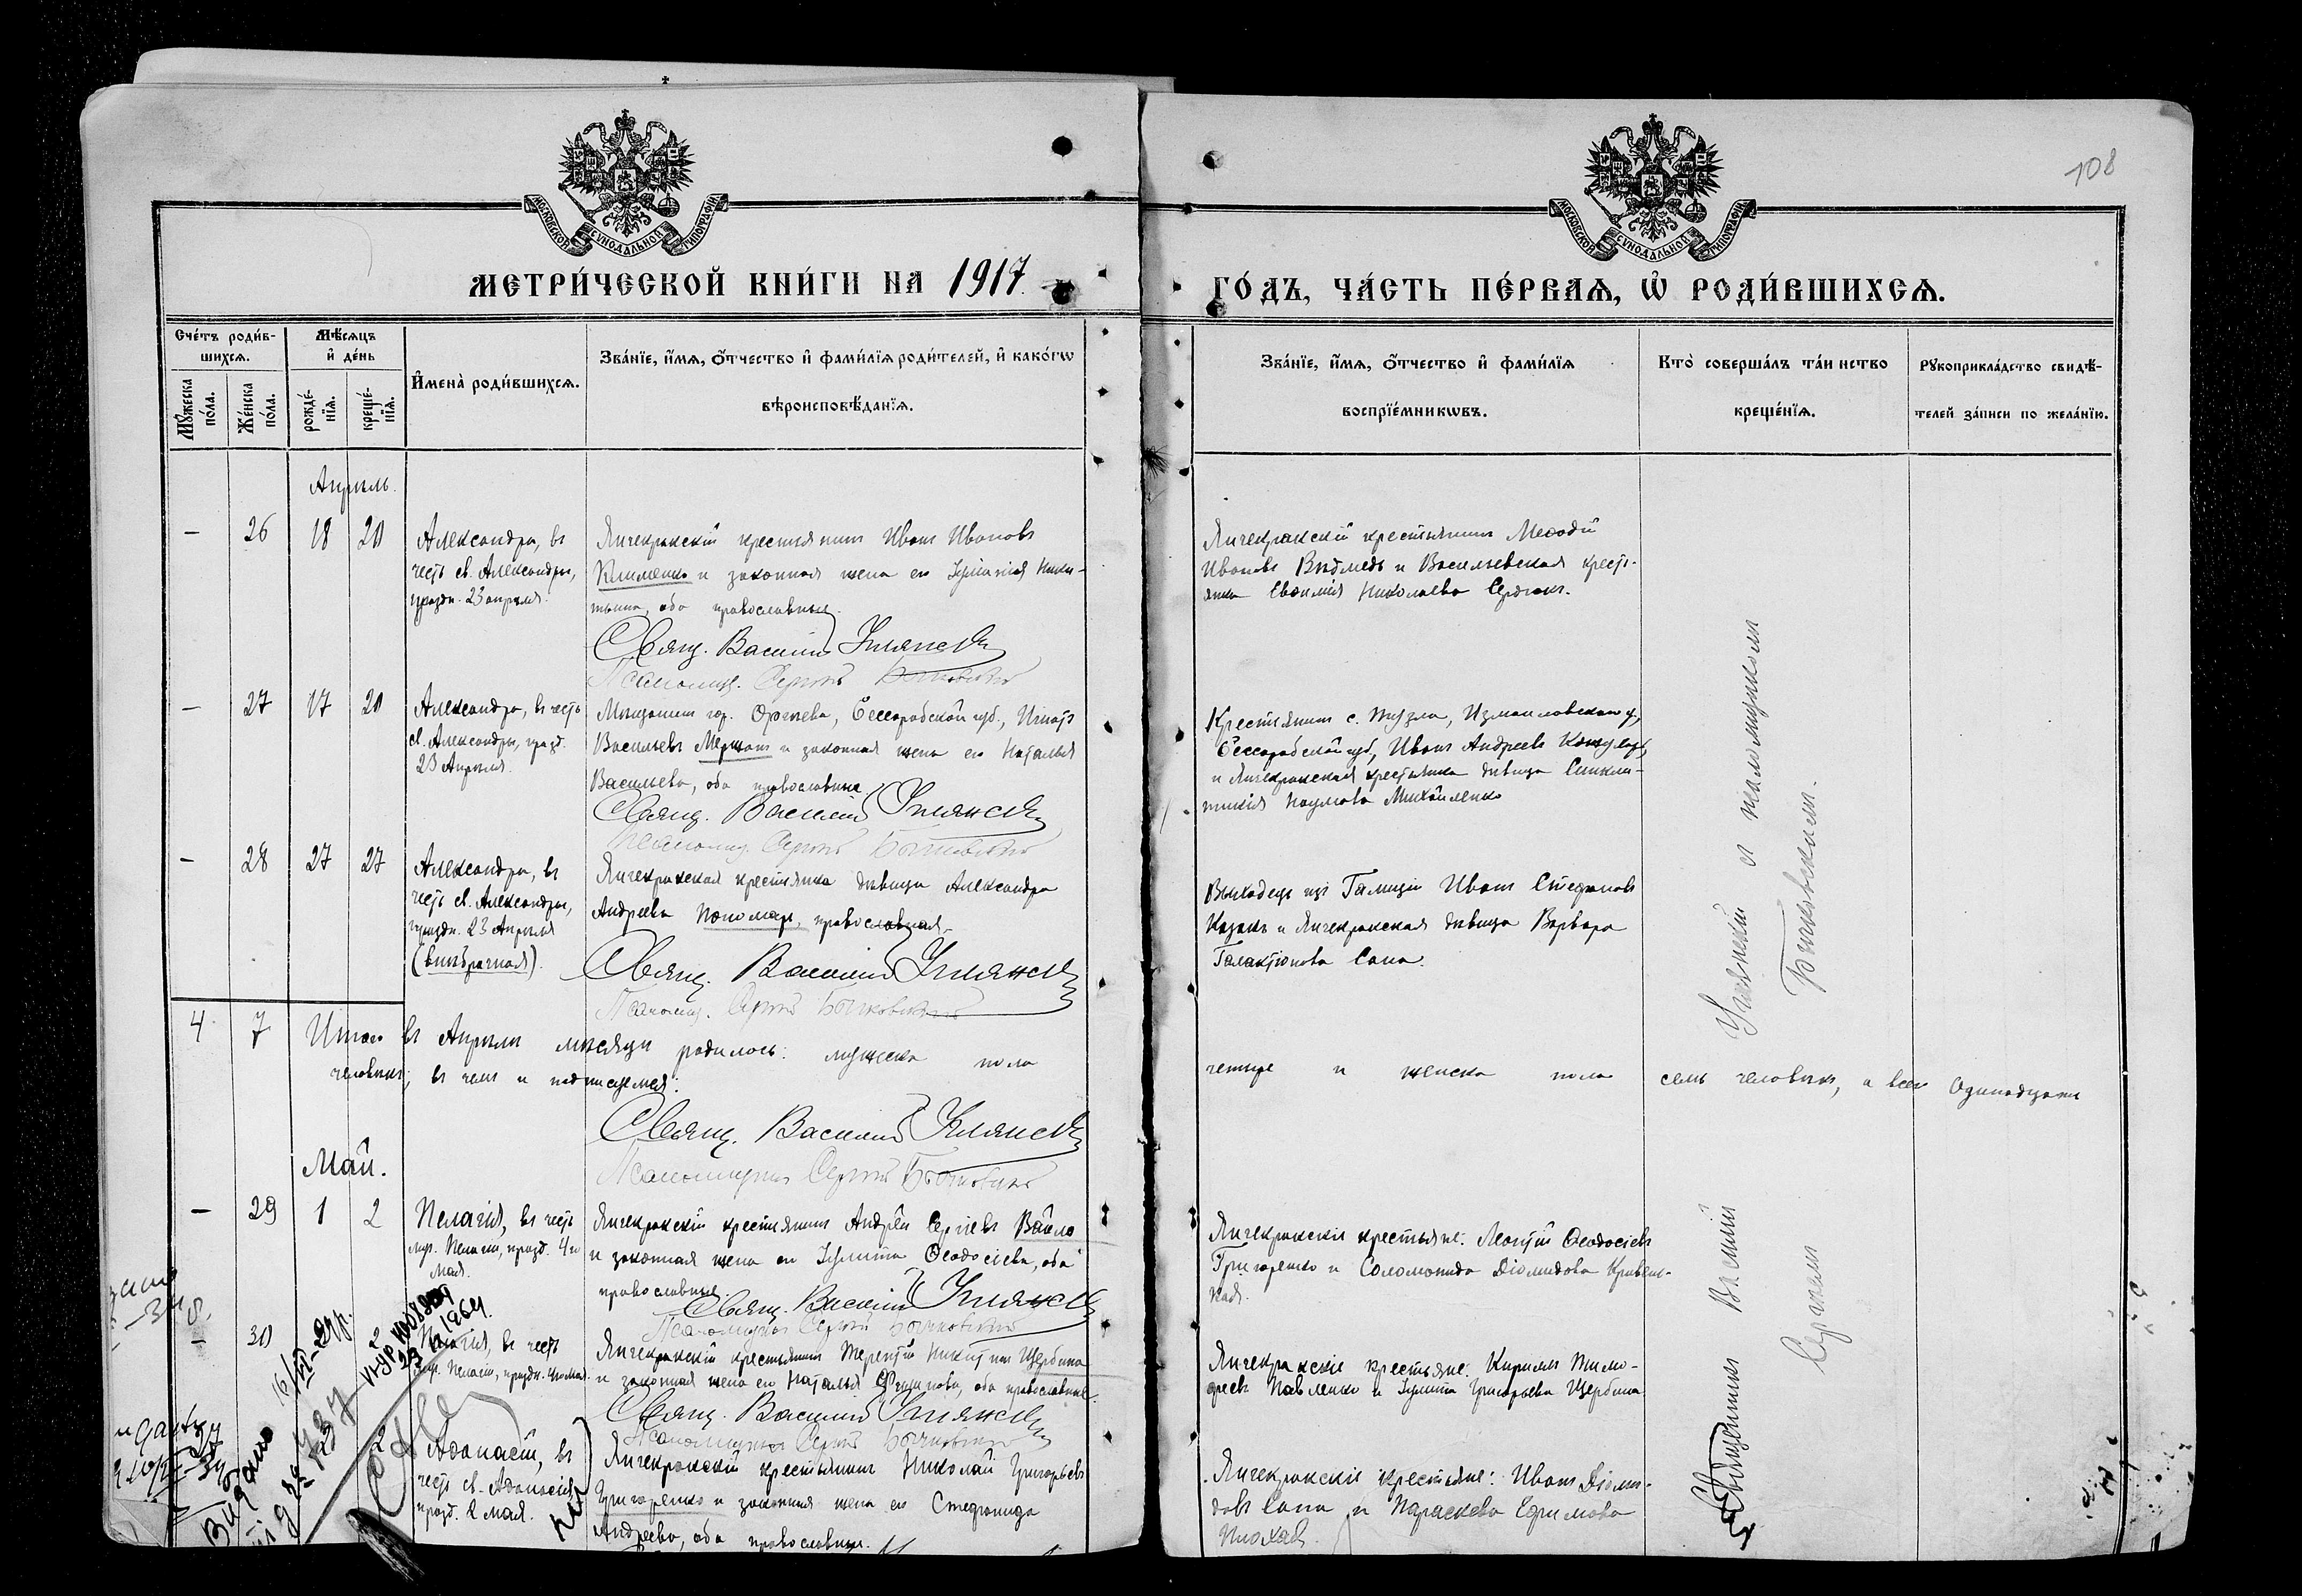 108
МОСКОВСКОЙ СѴНОДАЛЬНОЙ ТИПОГРАФІИ
МОСКОВСКОЙ СѴНОДАЛЬНОЙ ТИПОГРАФІИ
МЕТРИ́ЧЕСКОЙ КНИ́ГИ НА 1917
ГО́ДЪ, ЧА́СТЬ ПЕ́РВАѦ, Ѡ҆ РОДИ́ВШИХСѦ.
Сче́тъ роди́в-
шихсѧ.
Мꙋ́жеска по́ла.
Же́нска по́ла.
Мѣ́сѧцъ
и҆ де́нь
рожде́-
нїѧ.
креще́-
нїѧ.
И҆мена̀ роди́вшихсѧ.
Зва́нїе, и҆́мѧ, ѻ҆́тчество и҆ фами́лїѧ роди́телей, и҆ како́гѡ
вѣроисповѣ́данїѧ.
Зва́нїе, и҆́мѧ, ѻ҆́тчество и҆ фами́лїѧ
воспрїе́мникѡвъ.
Кто̀ соверша́лъ та́инство
креще́нїѧ.
Рꙋкоприкла́дство свидѣ́-
телей за́писи по жела́нїю.
Апрѣль.
— 26 18 20
Александра, въ
честь св. Александры,
праздн. 23 апрѣля.
Янчекракскій крестьянинъ Иванъ Ивановъ
Клименко и законная жена его Іуліанія Ники-
тина, оба православные.
Свящ. Василій
Псаломщ. Сергій Бычковскій
Янчекракскій крестьянинъ Меѳодій
Ивановъ Выдмедь и Васильевская кресть-
янка Евѳимія Николаева Сердюкъ.
— 27 17 20
Александра, въ честь
св. Александры, празд.
23 Апрѣля.
Мѣщанинъ гор. Оргѣева, Бессарабской губ., Игнатъ
Васильевъ и законная жена его Наталья
Васильева, оба православные.
Свящ. Василій
Псаломщ. Сергій Бычковскій
Крестьянинъ с. Тузла, Измаиловскаго у.,
Бессарабской губ., Иванъ Андреевъ
и Янчекракская крестьянка дѣвица Синкли-
тикія Наумова Михайленко
— 28 27 27
Александра, въ
честь св. Александры,
праздн. 23 Апрѣля
(внѣбрачная).
Янчекракская крестьянка дѣвица Александра
Андреева Пономарь, православная.
Свящ. Василій
Псаломщ. Сергій Бычковскій
Выходецъ изъ Галиціи Иванъ Стефановъ
Казакъ и Янчекракская дѣвица Варвара
Галактіонова Сапа.
4 7 Итого въ Апрѣлѣ мѣсяцѣ родилось: мужеска пола четыре и женска пола семь человѣкъ, а всего одинадцать
человѣкъ; въ чемъ и подписуемся:
Свящ. Василій
Псаломщикъ Сергій Бычковскій
Май.
— 29 1 2
Пелагія, въ честь
муч. Пелагіи, празд. 4го
Мая.
Янчекракскій крестьянинъ Андрей Сергіевъ Вайло
и законная жена его Іулитта Ѳеодосіева, оба
православные.
Свящ. Василій
Псаломщикъ Сергій Бычковскій
Янчекракскіе крестьяне: Леонтій Ѳеодосіевъ
Григоренко и Соломонида Діомидова Кривень-
кая.
— 30 2
Пелагія, въ честь
муч. Пелагіи, праздн. 4го мая.
Янчекракскій крестьянинъ Терентій Никитинъ Щербина
и законная жена его Наталья Филипова, оба православные.
Свящ. Василій
Псаломщикъ Сергій Бычковскій
Янчекракскіе крестьяне: Кириллъ Тимо-
феевъ Павленко и Іулитта Григорьева Щербина
2
Аѳанасій, въ
честь св. Аѳанасія,
празд. 2 мая.
Янчекракскій крестьянинъ Николай Григорьевъ
Григоренко и законная жена его Стефанида
Андреева, оба православные.
Янчекракскіе крестьяне: Иванъ Діоми-
довъ Сапа и Параскева Ефимова
Священникъ Василій и псаломщикъ
Сергѣемъ Бычковскимъ.
Видано